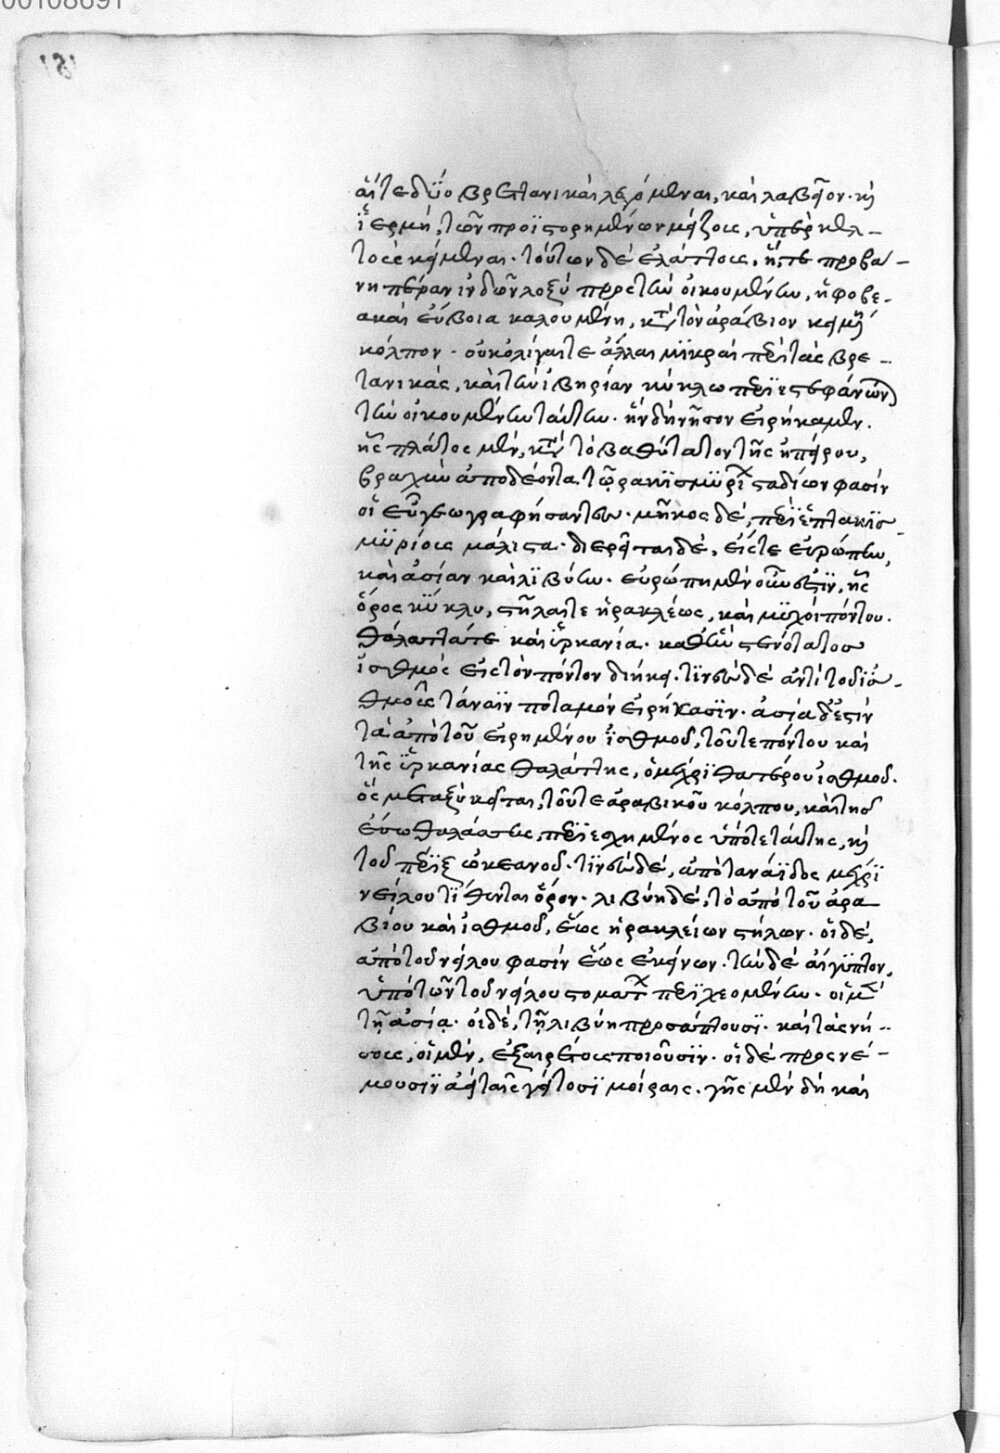 αἵ τε δύο βρετανικαὶ λεγόμεναι, καὶ λαβῖον· καὶ
ἱερμὴ, τῶν προϊστορημένων μείζους, ὑπὲρ κελ-
τοὺς κείμεναι· τούτων δὲ ἐλάττους, ἥ τε προβα-
νη πέραν ἰνδῶν λοξὴ πρὸς τὴν οἰκουμένην, ἡ φοβε-
α καὶ εὔβοια καλουμένη, κατὰ τὸν ἀράβιον κειμένη
κόλπον· οὐκ ὀλίγαι τε ἄλλαι μικραὶ περὶ τὰς βρε-
τανικὰς, καὶ τὴν ἰβηρίαν κύκλω περιεστεφάνων
τὴν οἰκουμένην ταύτην· ἣν δὴ νῆσον εἰρήκαμεν.
ἧς πλάτος μὲν, κατὰ τὸ βαθύτατον τῆς ἠπείρου,
βραχὺ ἀποδέοντα τετρακισμυρίων σταδίων φασὶν
οἱ εὖ γεωγραφήσαντες· μῆκος δὲ, περὶ ἑπτακισ-
μυρίους μάλιστα· διερεῖται δὲ, εἴς τε εὐρώπην,
καὶ ἀσίαν καὶ λιβύην· εὐρώπη μὲν οὖν ἐστὶν, ἧς
ὅρος κύκλω, στῆλαί τε ἡρακλέως, καὶ μυχοὶ πόντου.
θάλαττά τε καὶ ὑρκανία· καθ' ἣν στενότατος
ἰσθμὸς εἰς τὸν πόντον διήκει· τινὲς δὲ ἀντὶ τοῦ ἰσ-
θμοῦ τάναϊν ποταμὸν εἰρήκασιν· ἀσία δέ ἐστιν
τὰ ἀπὸ τοῦ εἰρημένου ἰσθμοῦ, τοῦ τε πόντου καὶ
τῆς ὑρκανίας θαλάττης, ὁ μέχρι θατέρου ἰσθμοῦ.
ὃς μεταξὺ κεῖται, τοῦ τε ἀραβικοῦ κόλπου, καὶ τῆς
ἔσω θαλάσσης, περιεχημένος ὑπό τε ταύτης, καὶ
τοῦ πέριξ ὠκεανοῦ· τινὲς δὲ, ἀπὸ τανάϊδος μέχρι
νείλου τίθενται ὅρον· λιβύη δὲ, τὸ ἀπὸ τοῦ ἀρα
βίου καὶ ἰσθμοῦ, ἕως ἡρακλείων στήλων· οἱ δὲ,
ἀπὸ τοῦ νείλου φασὶν ἕως ἐκείνων· τὴν δὲ αἴγυπτον,
ὑπὸ τῶν τοῦ νείλου στομάτων περιχεομένην· οἱ μὲν
τῇ ἀσίᾳ· οἱ δὲ, τῇ λιβύη προσάπτουσι· καὶ τὰς νή-
σους, οἱ μὲν, ἐξαιρέτους ποιοῦσιν· οἱ δὲ προσνέ-
μουσιν ἀεὶ ταῖς γείτοσι μοίραις· γῆς μὲν δὴ καὶ